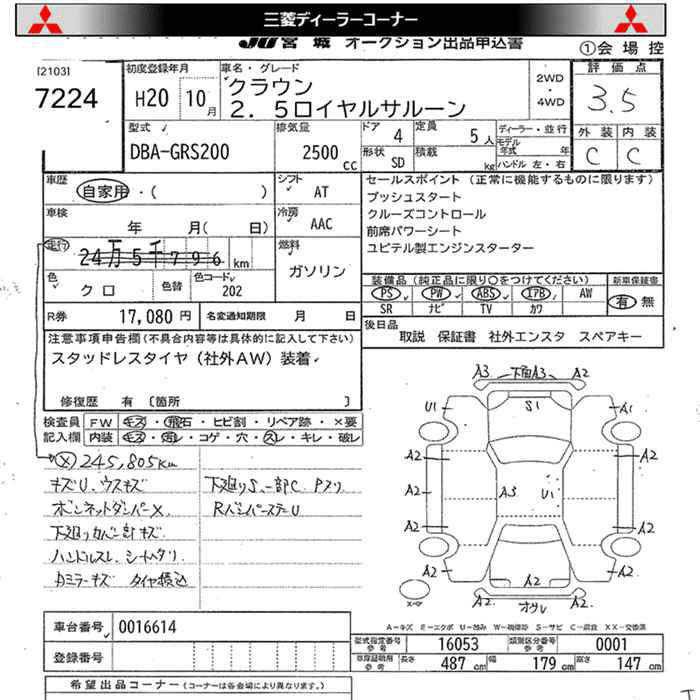 三菱ディーラーコーナー
JU宮城 オークション出品申込書
①会場控
[2103]
7224
初度登録年月
H20 10月
車名・グレード
クラウン
2．5ロイヤルサルーン
2WD
・
4WD
評価点
3.5
外装 内装
C C
型式
DBA-GRS200
排気量
2500 cc
ドア 4
定員 5人
形状 SD
積載 kg
ディーラー・並行
モデル年式 年
ハンドル 左・右
車歴
自家用・( )
シフト AT
車検
年 月( 日)
冷房 AAC
走行
24万5千796 km
燃料
ガソリン
色 クロ
色替
色コード 202
R券 17,080円
名変通知期限 月 日
セールスポイント (正常に機能するものに限ります)
プッシュスタート
クルーズコントロール
前席パワーシート
ユピテル製エンジンスターター
装備品 (純正品に限り○をつけてください)
新車保証書
PS PW ABS エアB AW
SR ナビ TV カワ
有 無
後日品
取説 保証書 社外エンスタ スペアキー
注意事項申告欄(不具合内容等は具体的に記入して下さい)
スタッドレスタイヤ(社外AW)装着
修復歴 有 〔箇所 〕
検査員記入欄
FW キズ・飛石・ヒビ割・リペア跡・×要
内装 キズ・汚レ・コゲ・穴・スレ・キレ・破レ
Ⓧ245,805km
キズU、ウスキズ
ボンネットダンパーX
下廻りカバー割キズ
ハンドルスレ、シートヘタリ
下廻りS、一部C、Pヌリ
RバンパーステーU
A3 下廻A3 A2
U1 S1 A1
A2 A2
A2 A3 U1
A2 A2
A2 A2 A2
A2 オクレ A2
A-キズ E-エクボ U-凹み W-補修跡 S-サビ C-腐食 XX-交換済
車台番号 0016614
登録番号
型式指定番号 参考 16053
類別区分番号 参考 0001
車庫証明用 参考 長さ 487cm 幅 179cm 高さ 147cm
希望出品コーナー (コーナーは各会場により異なります。)